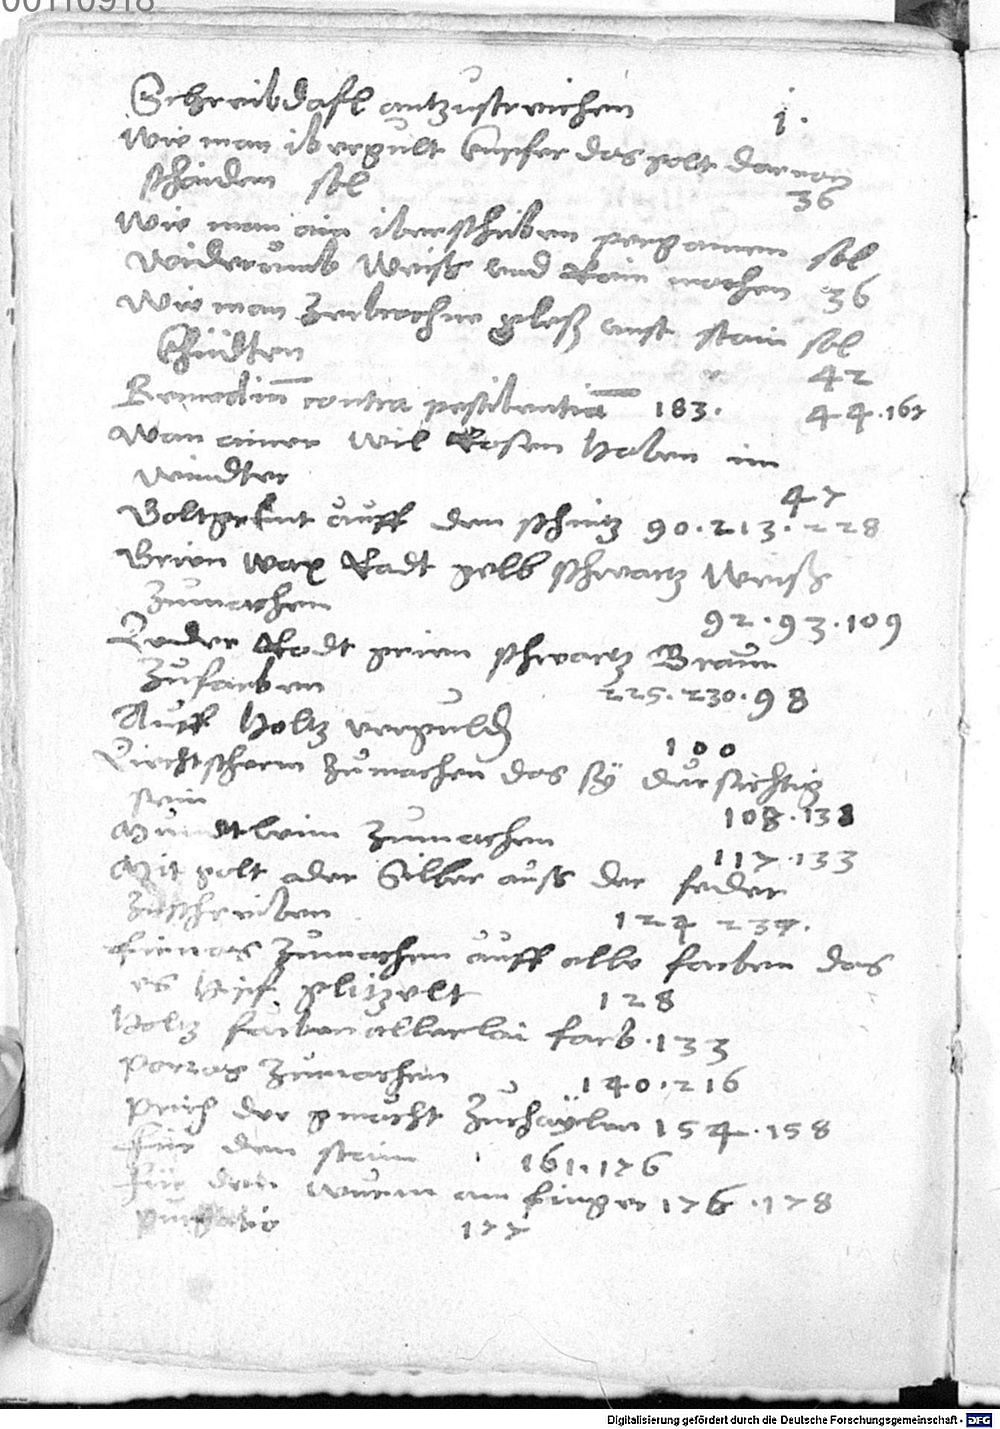 00110918
Schreibdafl antzustreichen 1.
Wie man ibergult kupfer das golt darvon
schaiden sol 36
Wie man ain iberschriben pergamen sol
widerumb weiss und Rain machen 36
Wie man zerbrochne gleß aust stain sol
Khüdten 42
Remediū contra pestilentiā 183. 44.167
Wan ainer wil Rosen haben im
windter 47
Boltgrunt auff den schnitz 90.213.228
Brien wax Radt gelb schwartz Weiß
zumachen 92.93.109
Leder Rodt grien schwartz Braun
zufarben 225.230.98
Auff Holtz vergulden 100
Liechtscherm zumachen das sÿ dursichtig
sein 108.138
Mundtleim zumachen 117.133
Mit golt oder Silber auss der feder
zuschreiben 124 234.
Firnas zumachen auff alle farben das
es glitzelt 128
Holtz farben allerlai farb.133
Porras zumachen 140.216
Prich der gmacht zuhaÿlen 154.158
Für den stain 161.176
Für den wurm am finger 176.178
purgatio 177
Digitalisierung gefördert durch die Deutsche Forschungsgemeinschaft - DFG